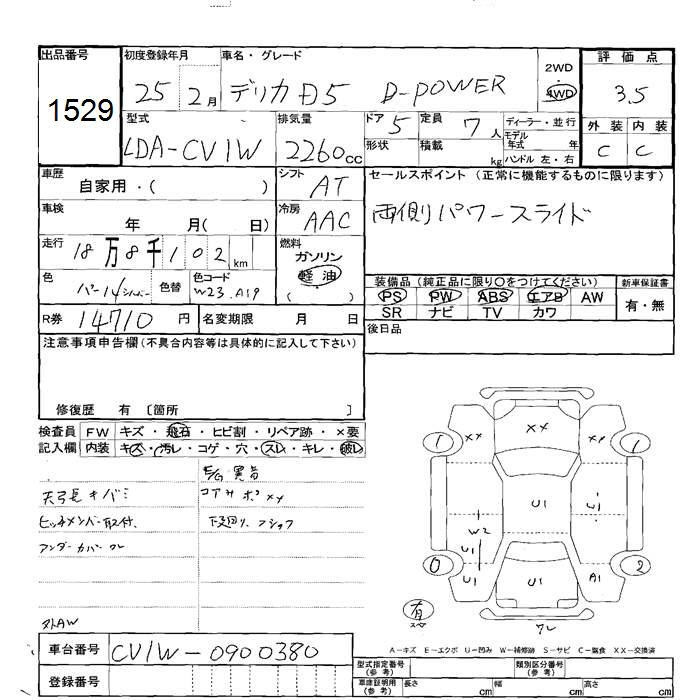 出品番号
1529
初度登録年月
25 2月
車名・グレード
デリカ D5 D-POWER
2WD
4WD
評価点
3.5
型式
LDA-CV1W
排気量
2260cc
ドア 5
形状
定員 7人
積載 kg
ディーラー・並行
モデル年式 年
ハンドル 左・右
外装 内装
C C
車歴
自家用・( )
シフト
AT
セールスポイント (正常に機能するものに限ります)
両側パワースライド
車検
年 月( 日)
冷房
AAC
走行
18万8千102km
燃料
ガソリン
軽油
( )
色
パール/シルバー
色替
色コード
W23.A19
装備品(純正品に限り○をつけてください)
PS PW ABS エアB AW
SR ナビ TV カワ
新車保証書
有・無
R券 14710円
名変期限 月 日
後日品
注意事項申告欄(不具合内容等は具体的に記入して下さい)
修復歴 有 〔箇所 〕
検査員記入欄
FW キズ・飛石・ヒビ割・リペア跡・×要
内装 キズ・汚レ・コゲ・穴・スレ・キレ・破レ
E/G 異音
天張キバミ
コアサポ XX
ヒッチメンバー取付
下廻り
アンダーカバー ワレ
社外AW
XX
XX XX
1 1
U1
W1
W2
U1
U1 U1 A1
0 2
有
ワレ
A-キズ E-エクボ U-凹み W-補修跡 S-サビ C-腐食 XX-交換済
車台番号
CV1W-0900380
登録番号
型式指定番号(参考)
類別区分番号(参考)
車庫証明用(参考)
長さ cm
幅 cm
高さ cm